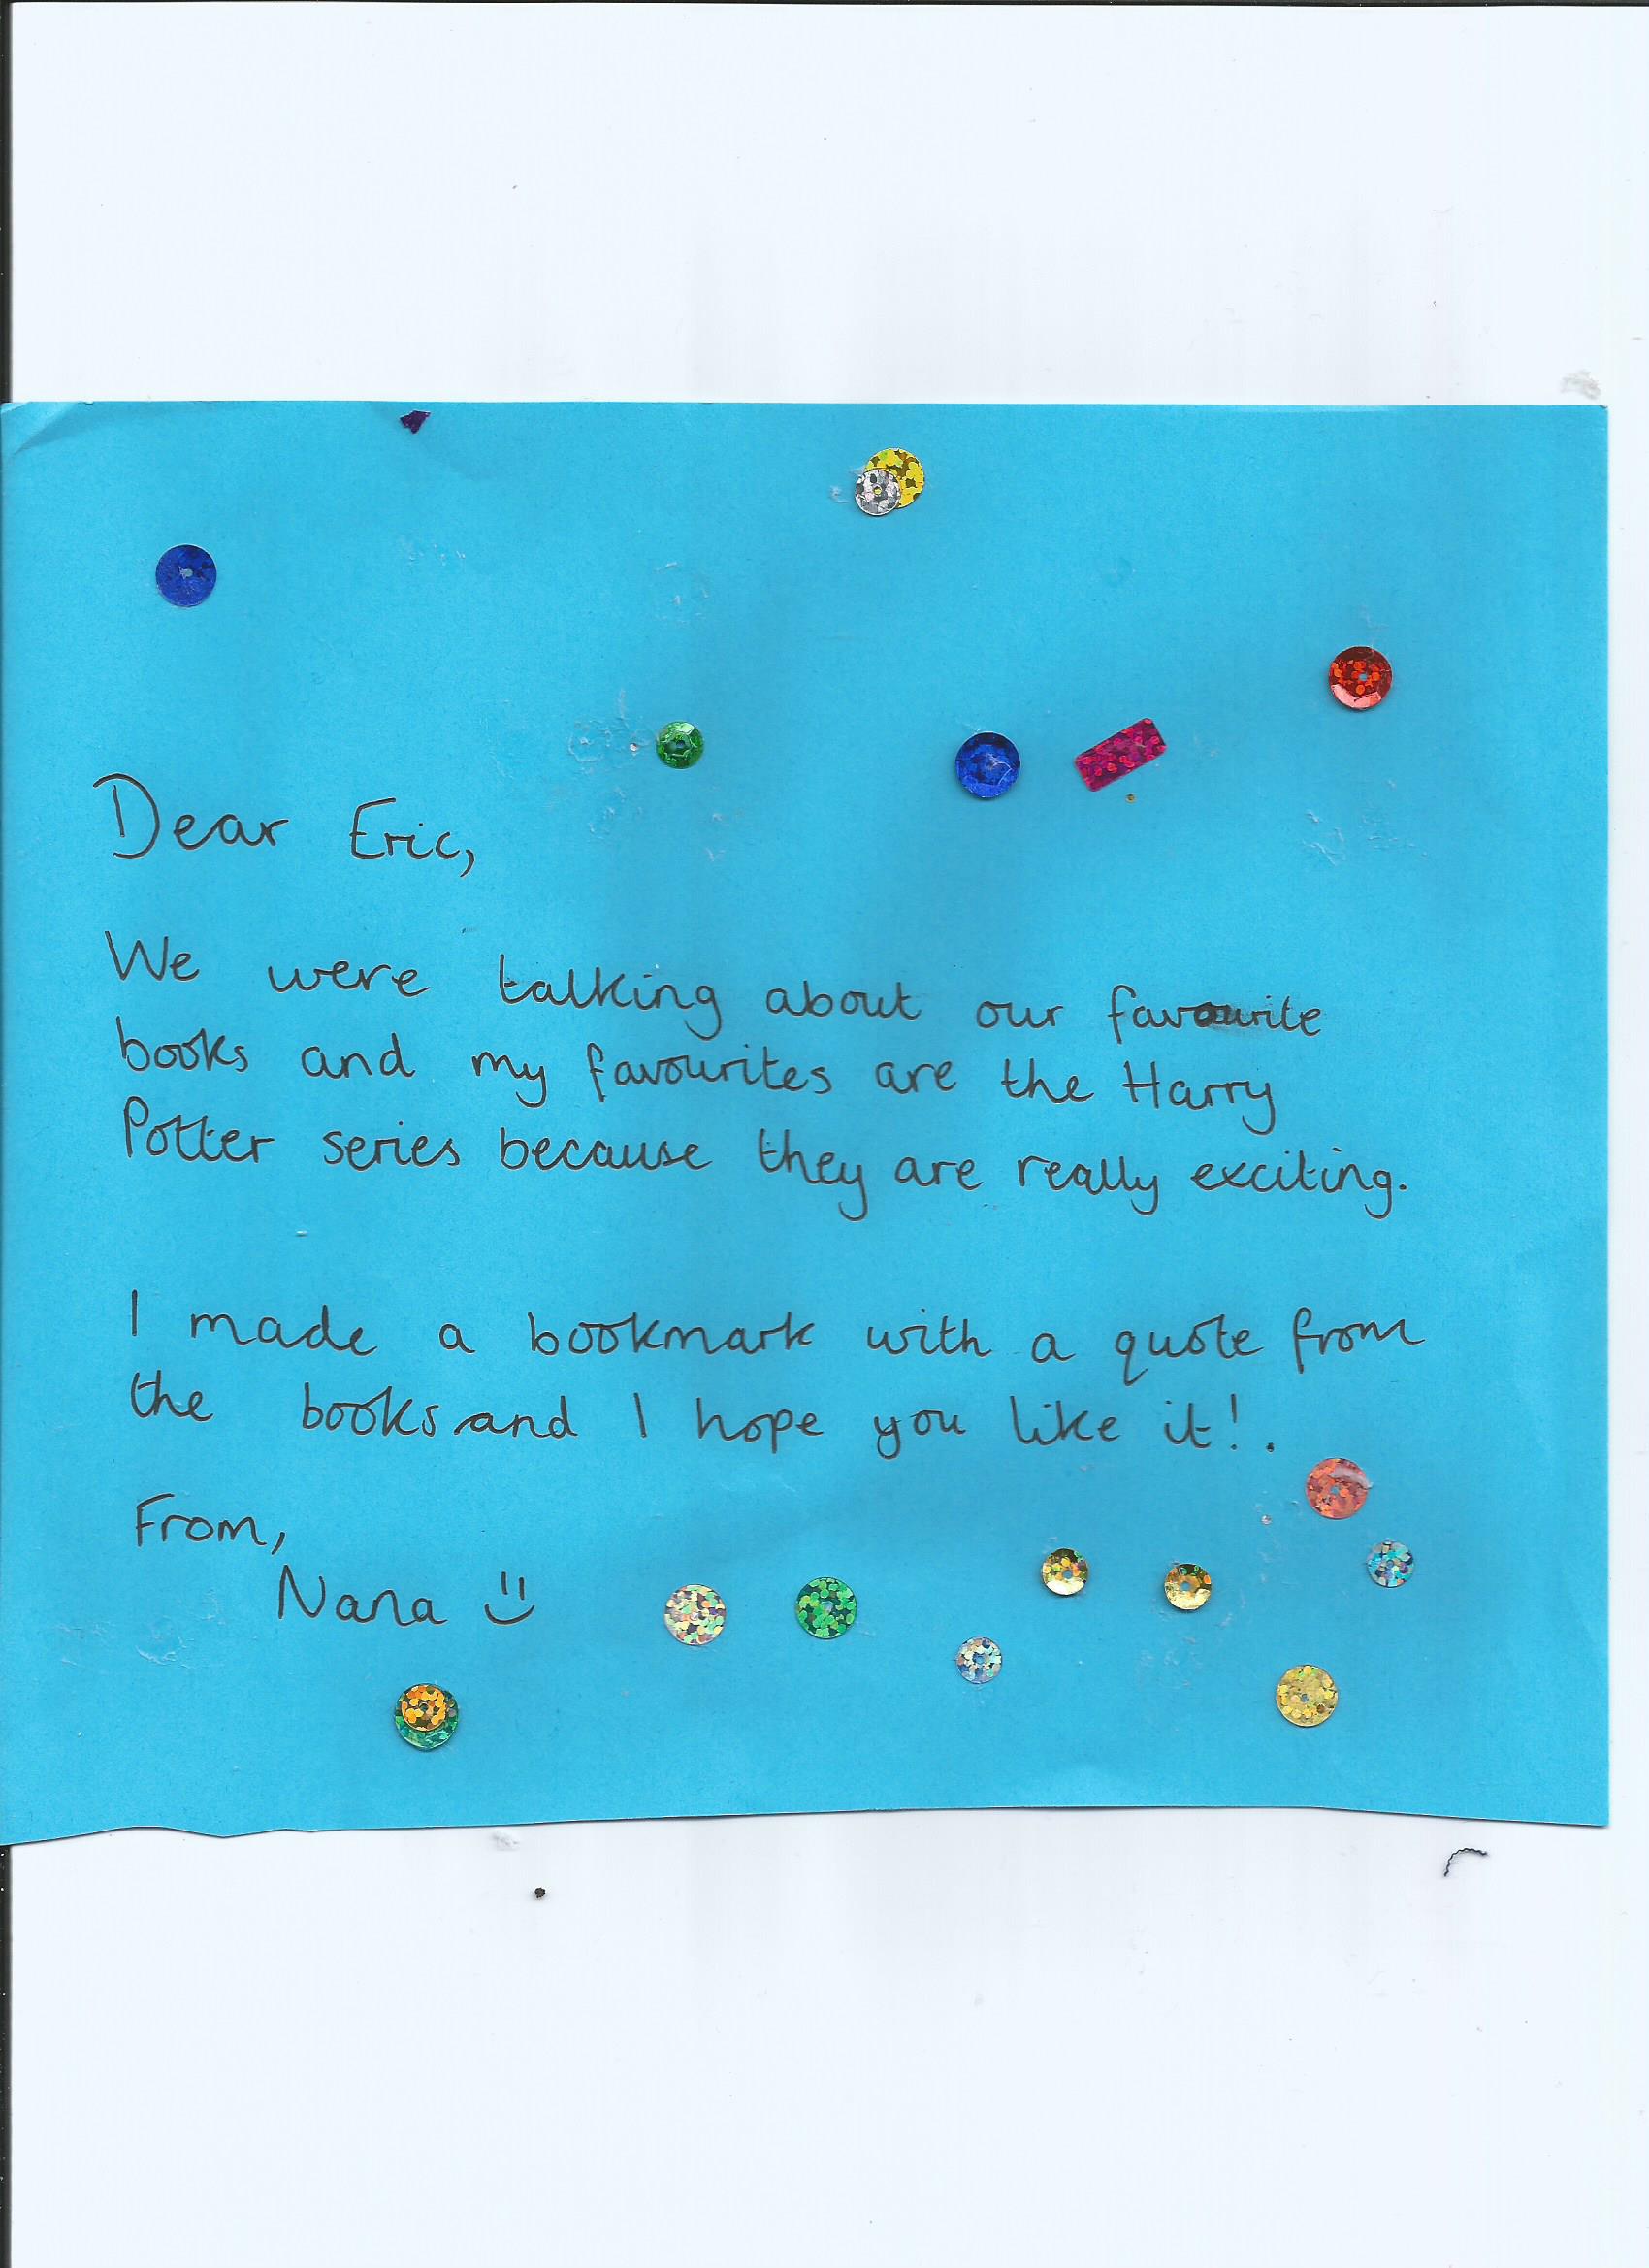 Dear Eric,
We were talking about our favourite
books and my favourites are the Harry
Potter series because they are really exciting.
I made a bookmark with a quote from
the books and I hope you like it!.
From,
Nana